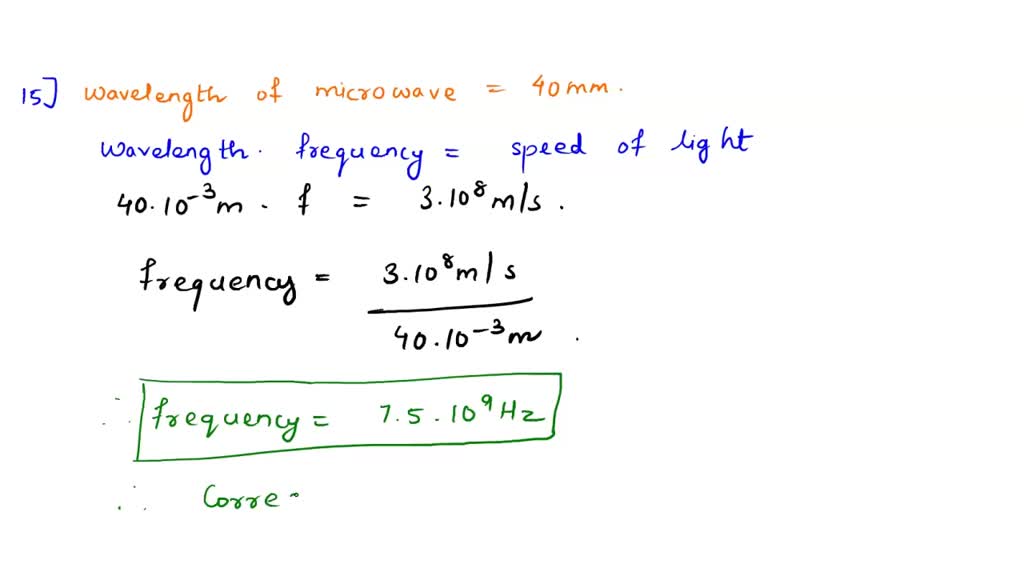 15] wavelength of microwave = 40mm.
wavelength. frequency = speed of light
40.10⁻³m. f = 3.10⁸m/s.
frequency = 3.10⁸m/s
40.10⁻³m .
∴ frequency = 7.5.10⁹Hz
∴ Corre